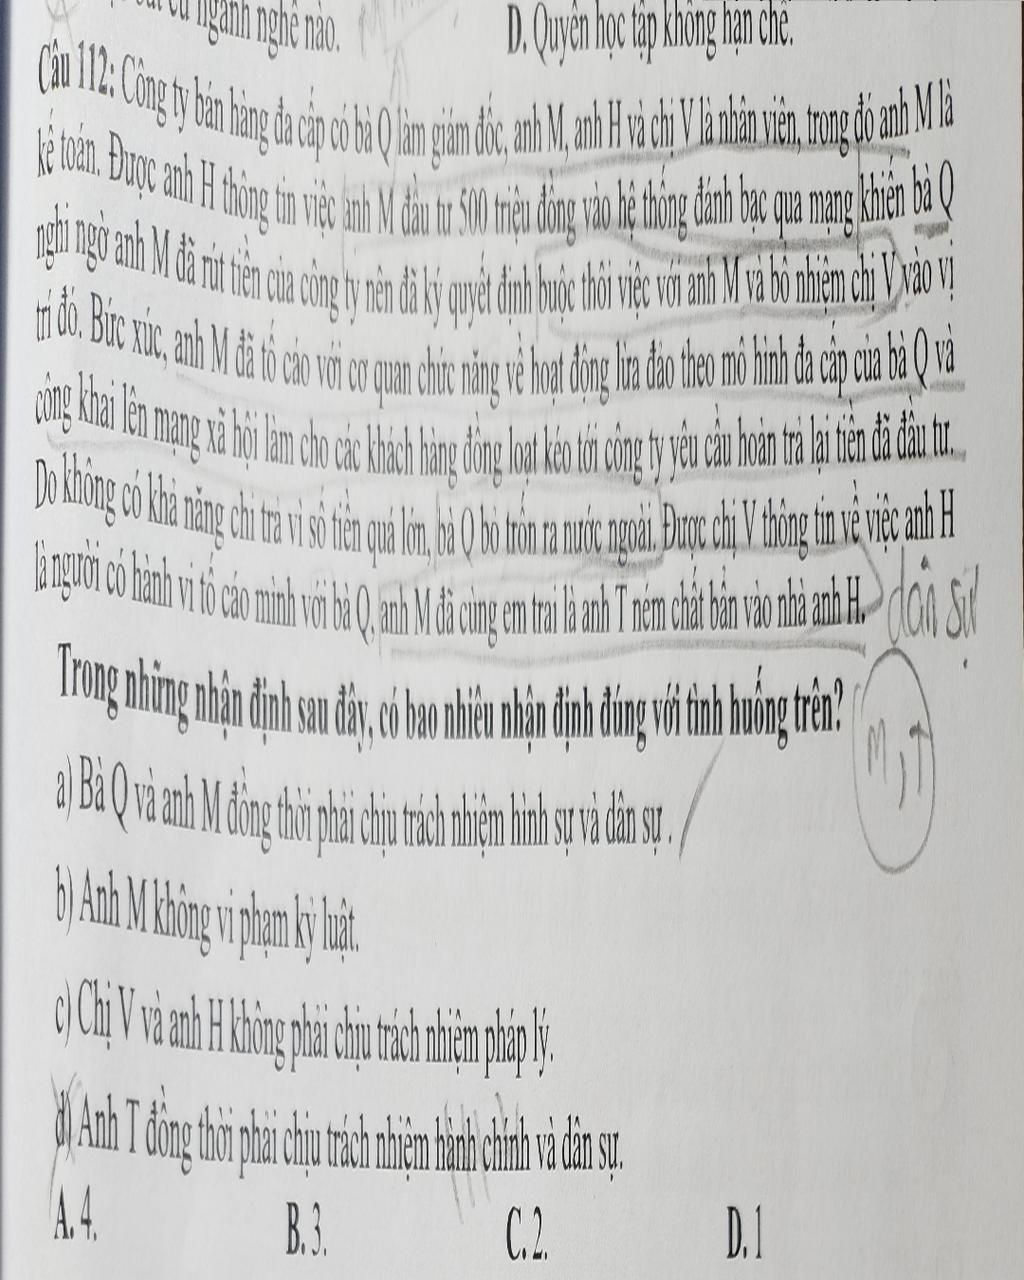 ngành nghề nào. D. Quyền học tập không hạn chế.
Câu 112: Công ty bán hàng đa cấp có bà Q làm giám đốc, anh M, anh H và chị V là nhân viên, trong đó anh M là
kế toán. Được anh H thông tin việc anh M đầu tư 500 triệu đồng vào hệ thống đánh bạc qua mạng khiến bà Q
nghi ngờ anh M đã rút tiền của công ty nên đã ký quyết định buộc thôi việc với anh M và bổ nhiệm chị V vào vị
trí đó. Bức xúc, anh M đã tố cáo với cơ quan chức năng về hoạt động lừa đảo theo mô hình đa cấp của bà Q và
công khai lên mạng xã hội làm cho các khách hàng đồng loạt kéo tới công ty yêu cầu hoàn trả lại tiền đã đầu tư.
Do không có khả năng chi trả vì số tiền quá lớn, bà Q bỏ trốn ra nước ngoài. Được chị V thông tin về việc anh H
là người có hành vi tố cáo mình với bà Q, anh M đã cùng em trai là anh T ném chất bẩn vào nhà anh H.
dân sự
Trong những nhận định sau đây, có bao nhiêu nhận định đúng với tình huống trên?
M, T
a) Bà Q và anh M đồng thời phải chịu trách nhiệm hình sự và dân sự .
b) Anh M không vi phạm kỷ luật.
c) Chị V và anh H không phải chịu trách nhiệm pháp lý.
d) Anh T đồng thời phải chịu trách nhiệm hành chính và dân sự.
A. 4. B. 3. C. 2. D. 1